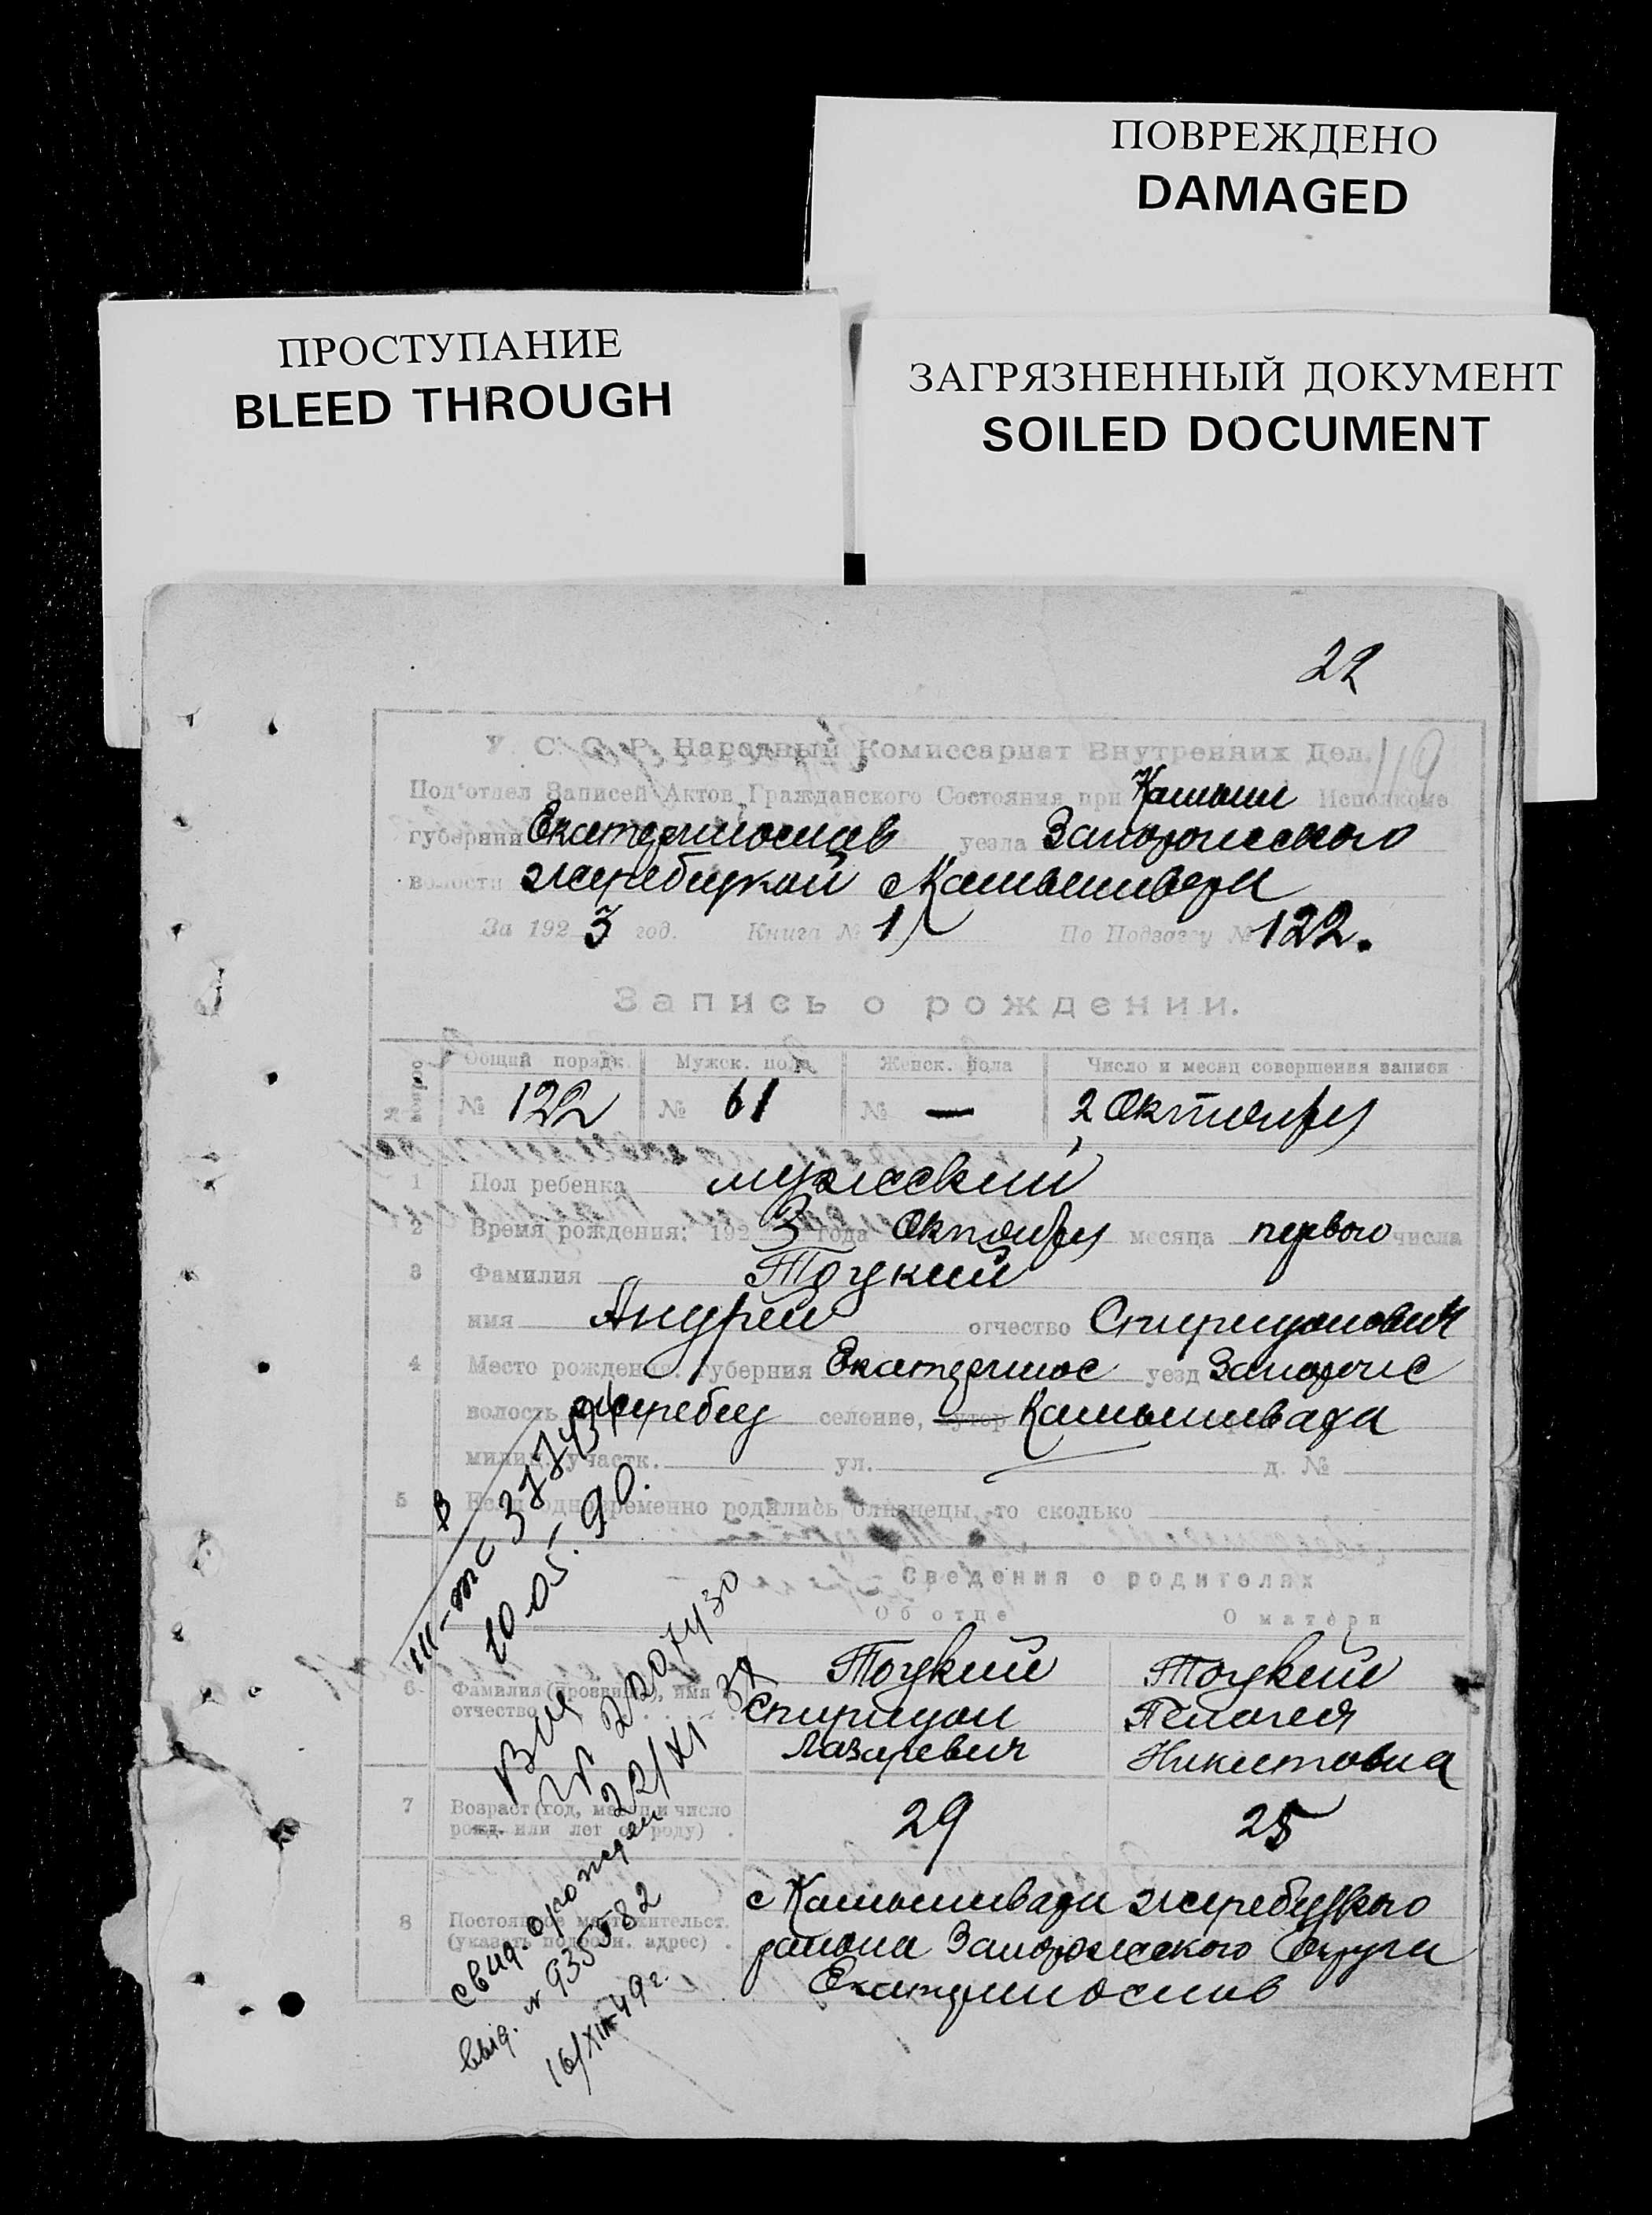 ПОВРЕЖДЕНО
DAMAGED
ПРОСТУПАНИЕ
BLEED THROUGH
ЗАГРЯЗНЕННЫЙ ДОКУМЕНТ
SOILED DOCUMENT
22
119
У. С. С. Р. Народный Комиссариат Внутренних Дел.
Под'отдел Записей Актов Гражданского Состояния при Камыш Исполкоме
губернии Екатеринослав уезда Запорожского
волости жеребецкой Камышевахи
За 1923 год. Книга № 1 По Подзагсу № 122.
Запись о рождении.
Общий порядк. Мужск. пола Женск. пола Число и месяц совершения записи
№ 122 № 61 № — 2 Октября
1 Пол ребенка мужеский
2 Время рождения: 1923 года Октября месяца первого числа
3 Фамилия Тоцкий
имя Андрей отчество Спиридонович
4 Место рождения: губерния Екатеринос уезд Запорож
волость жеребец селение, хутор Камышеваха
милиц. участк. ул. д. №
5 Если одновременно родились близнецы, то сколько
Сведения о родителях
Об отце О матери
6 Фамилия (прозвище), имя Тоцкий Тоцкий
отчество Спиридон Пелагея
Лазаревич Никитовна
7 Возраст (год, месяц и число
рожд. или лет от роду) 29 25
с Камышевахи жеребецкого
8 Постоянное местожительст.
(указать подробн. адрес) района Запорожского Округа
Екатеринослав
10-05-90.
№ 2207430
22/XI-37
свид. о рожден
выд. № 935582
16/XII-49 г.